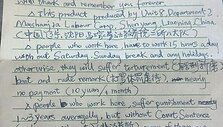 thank and remember you forever
★ This product produced by Unit 8, Department 2
Masanjia Labour Camp, Shen Yang, Liaoning, China
(中国,辽宁,沈阳,马三家劳动教养院二所八大队)
★ People who work here, have to work 15 hours a day
with out Saturday, Sunday break and any holidays,
otherwise, they will suffer torturement (酷刑折磨),
beat and rude remark (打骂体罚虐待), nearly
no payment (10 yuan/1 month)
★ People who work here, suffer punishment
1-3 years averagelly, but without Court Sentence